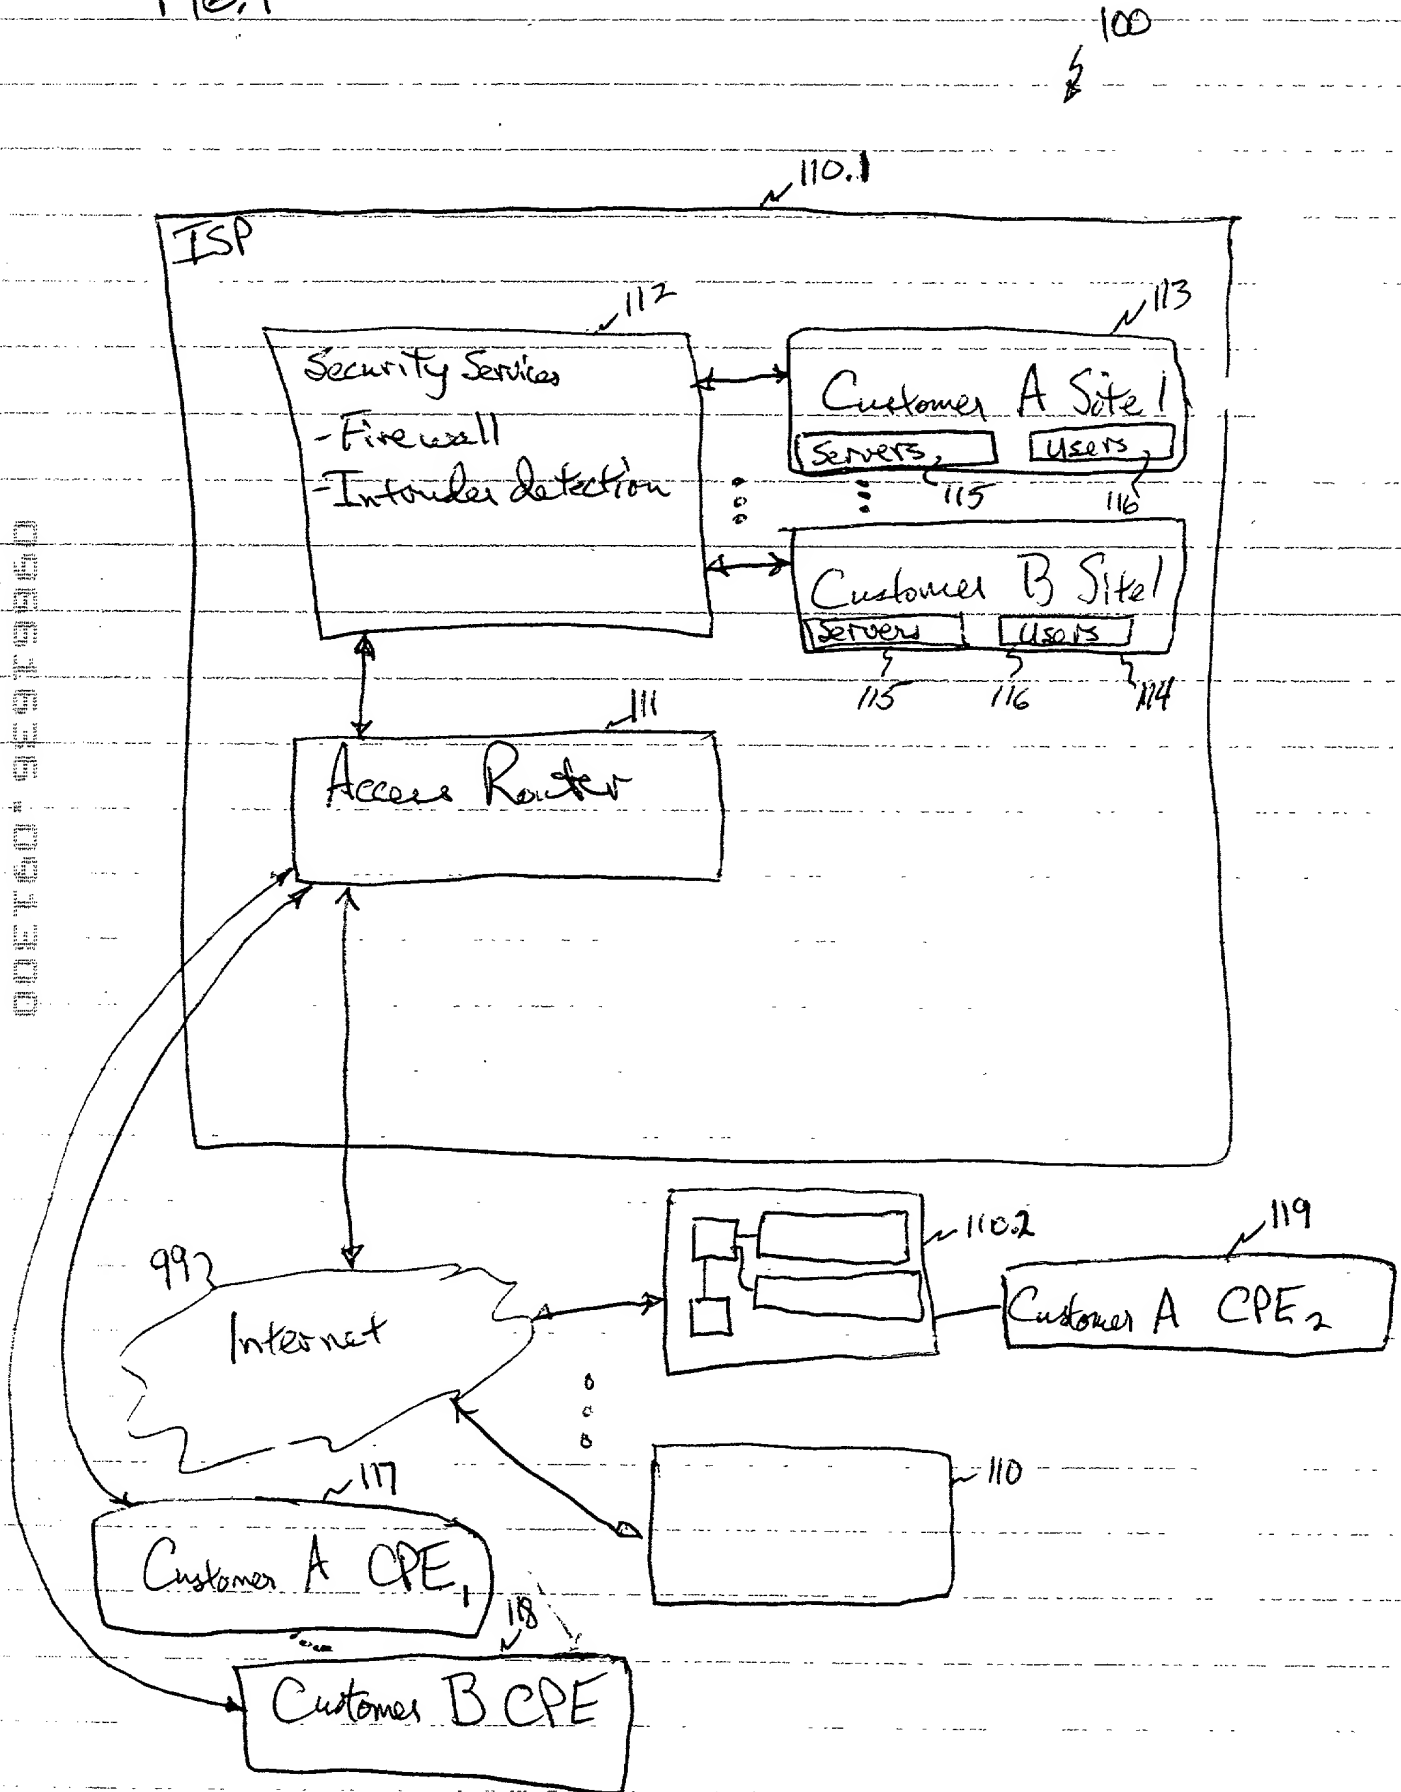 FIG. 1
100
110.1
ISP
112
113
Security Services
- Firewall
- Intruder detection
Customer A Site 1
Servers
Users
115
116
Customer B Site 1
Servers
Users
115
116
114
111
Access Router
99
Internet
110.2
119
Customer A CPE2
110
117
Customer A CPE1
118
Customer B CPE
09661636.091300